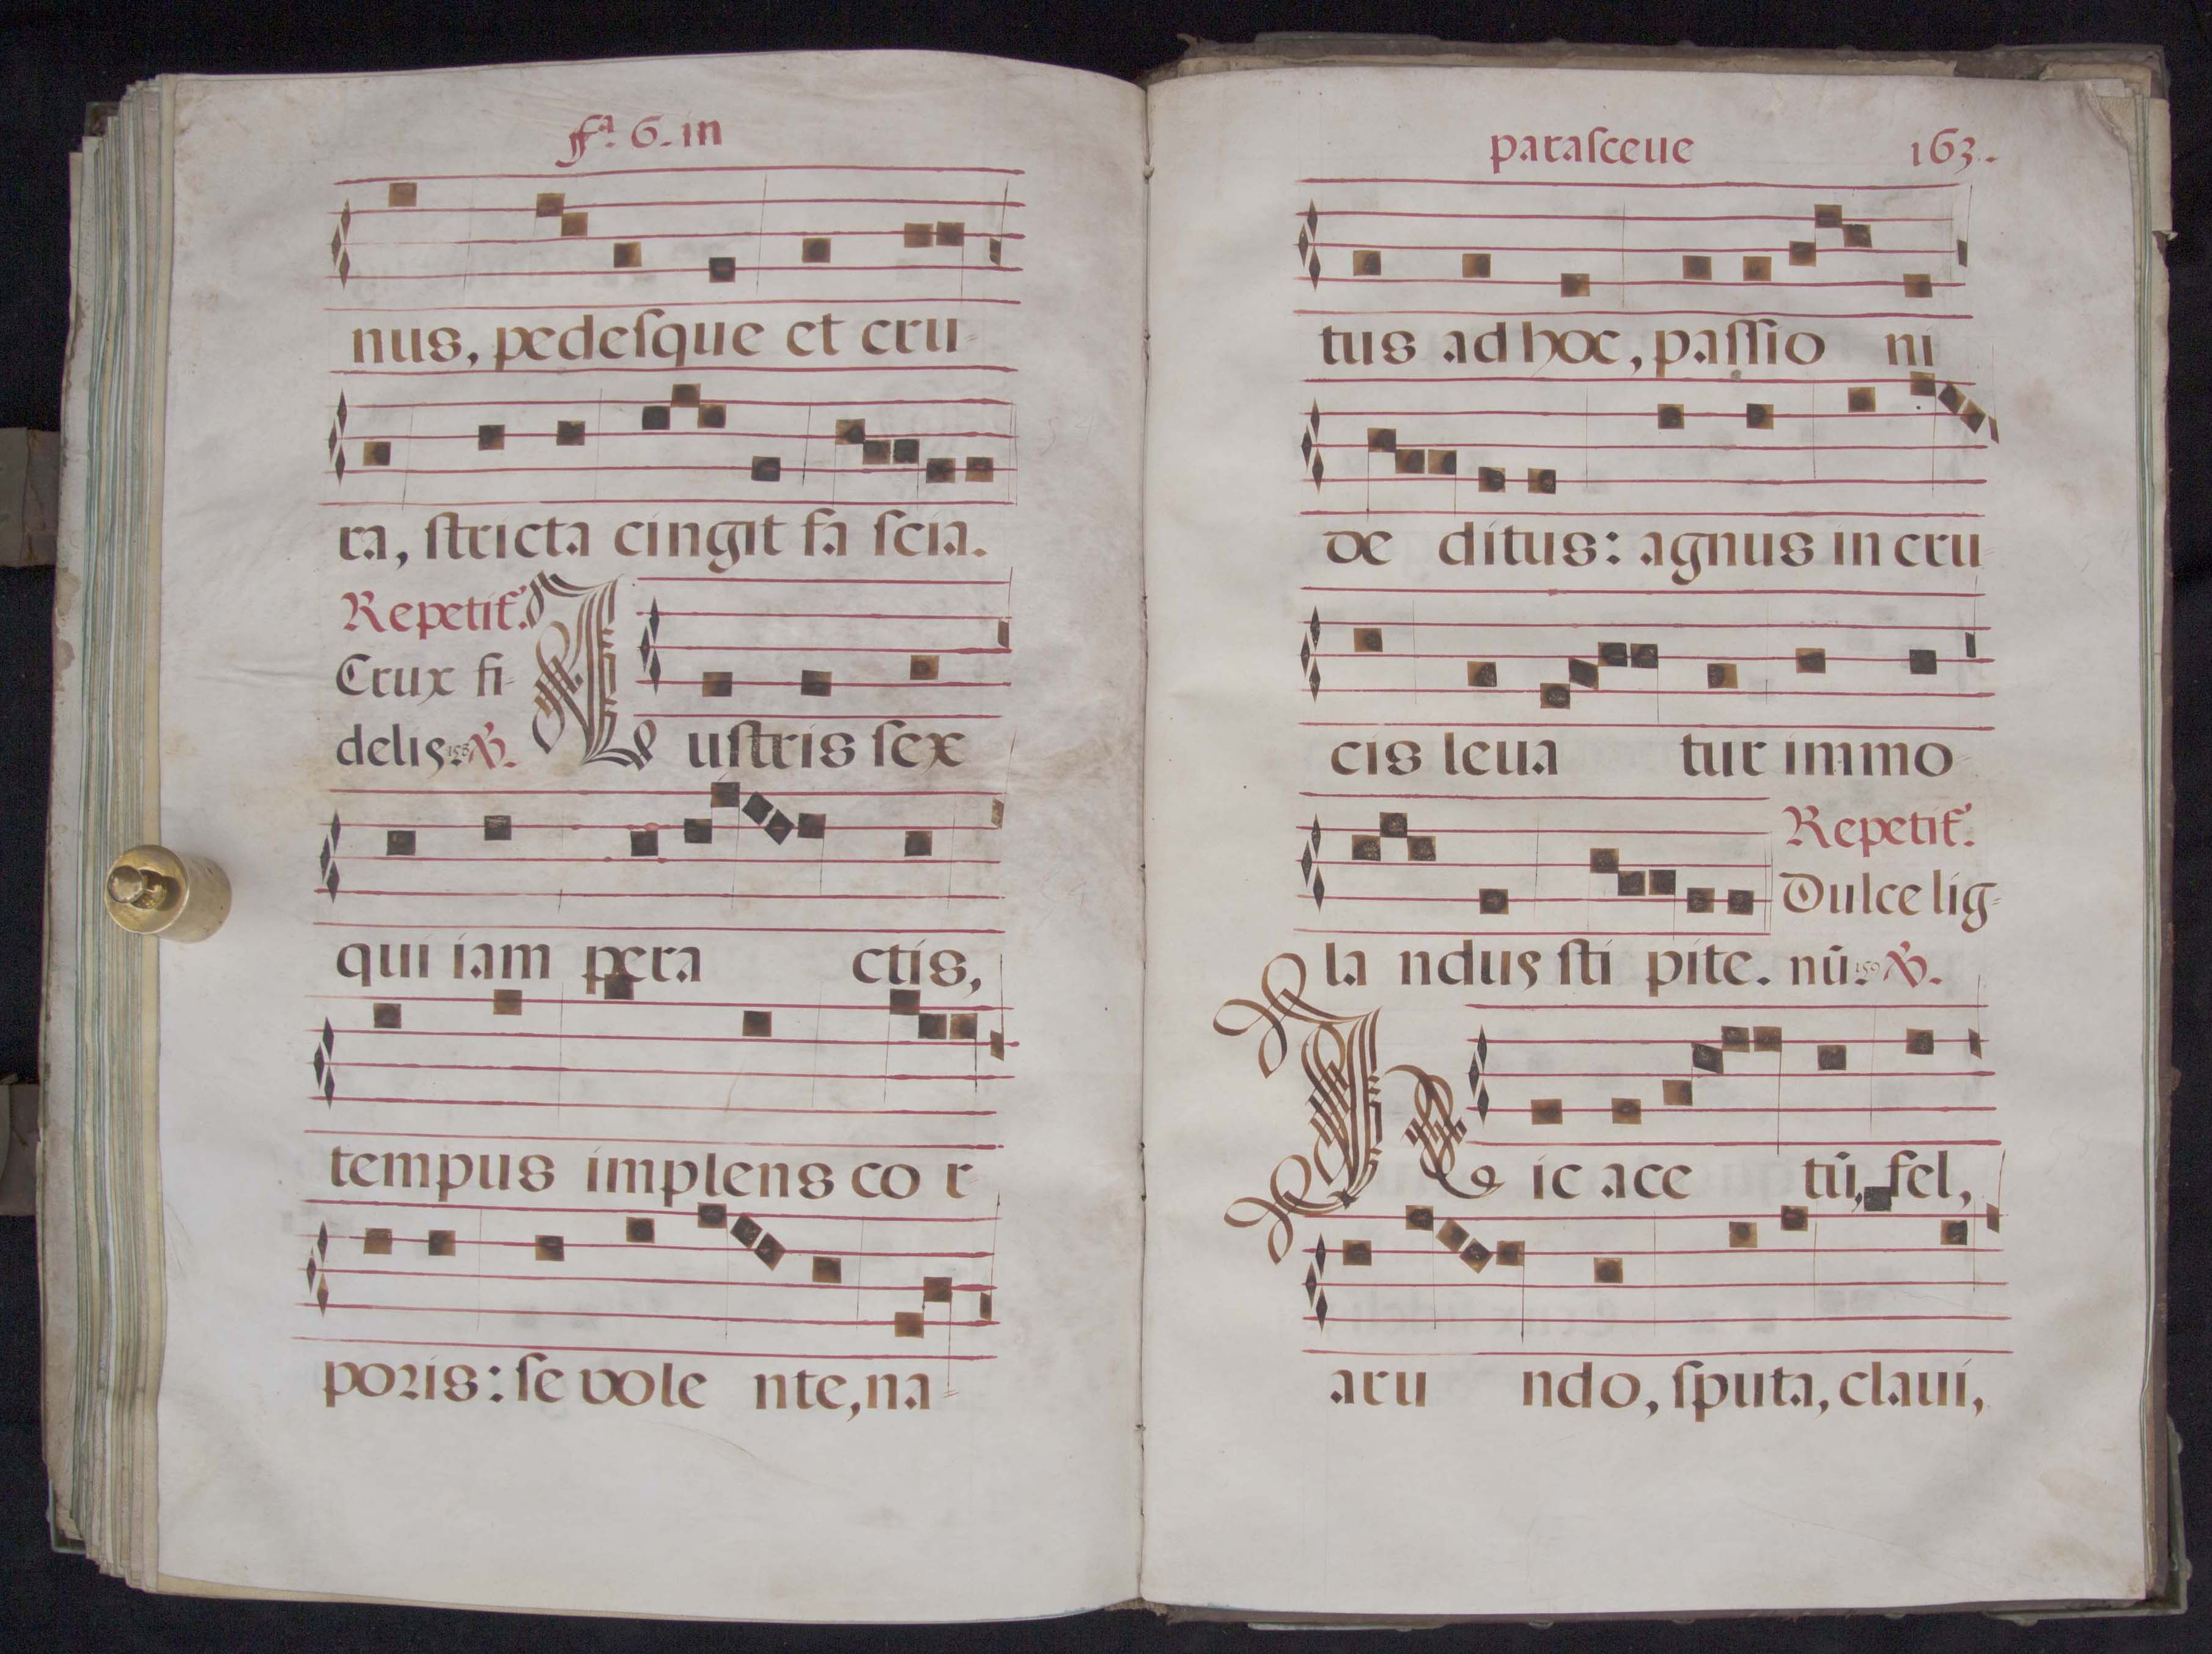 fª. 6. in
nus, pedesque et cru-
ra, stricta cingit fa scia.
Repetit.
Crux fi-
delis. 158 ℣.
Lustris sex
qui iam pera ctis,
tempus implens co r-
poris: se vole nte, na-
parasceue 163.
tus ad hoc, passio ni
de ditus: agnus in cru-
cis leua tur immo-
Repetit.
Dulce lig-
la ndus sti pite. nū. 159 ℣.
Hic ace tū, fel,
aru ndo, sputa, claui,